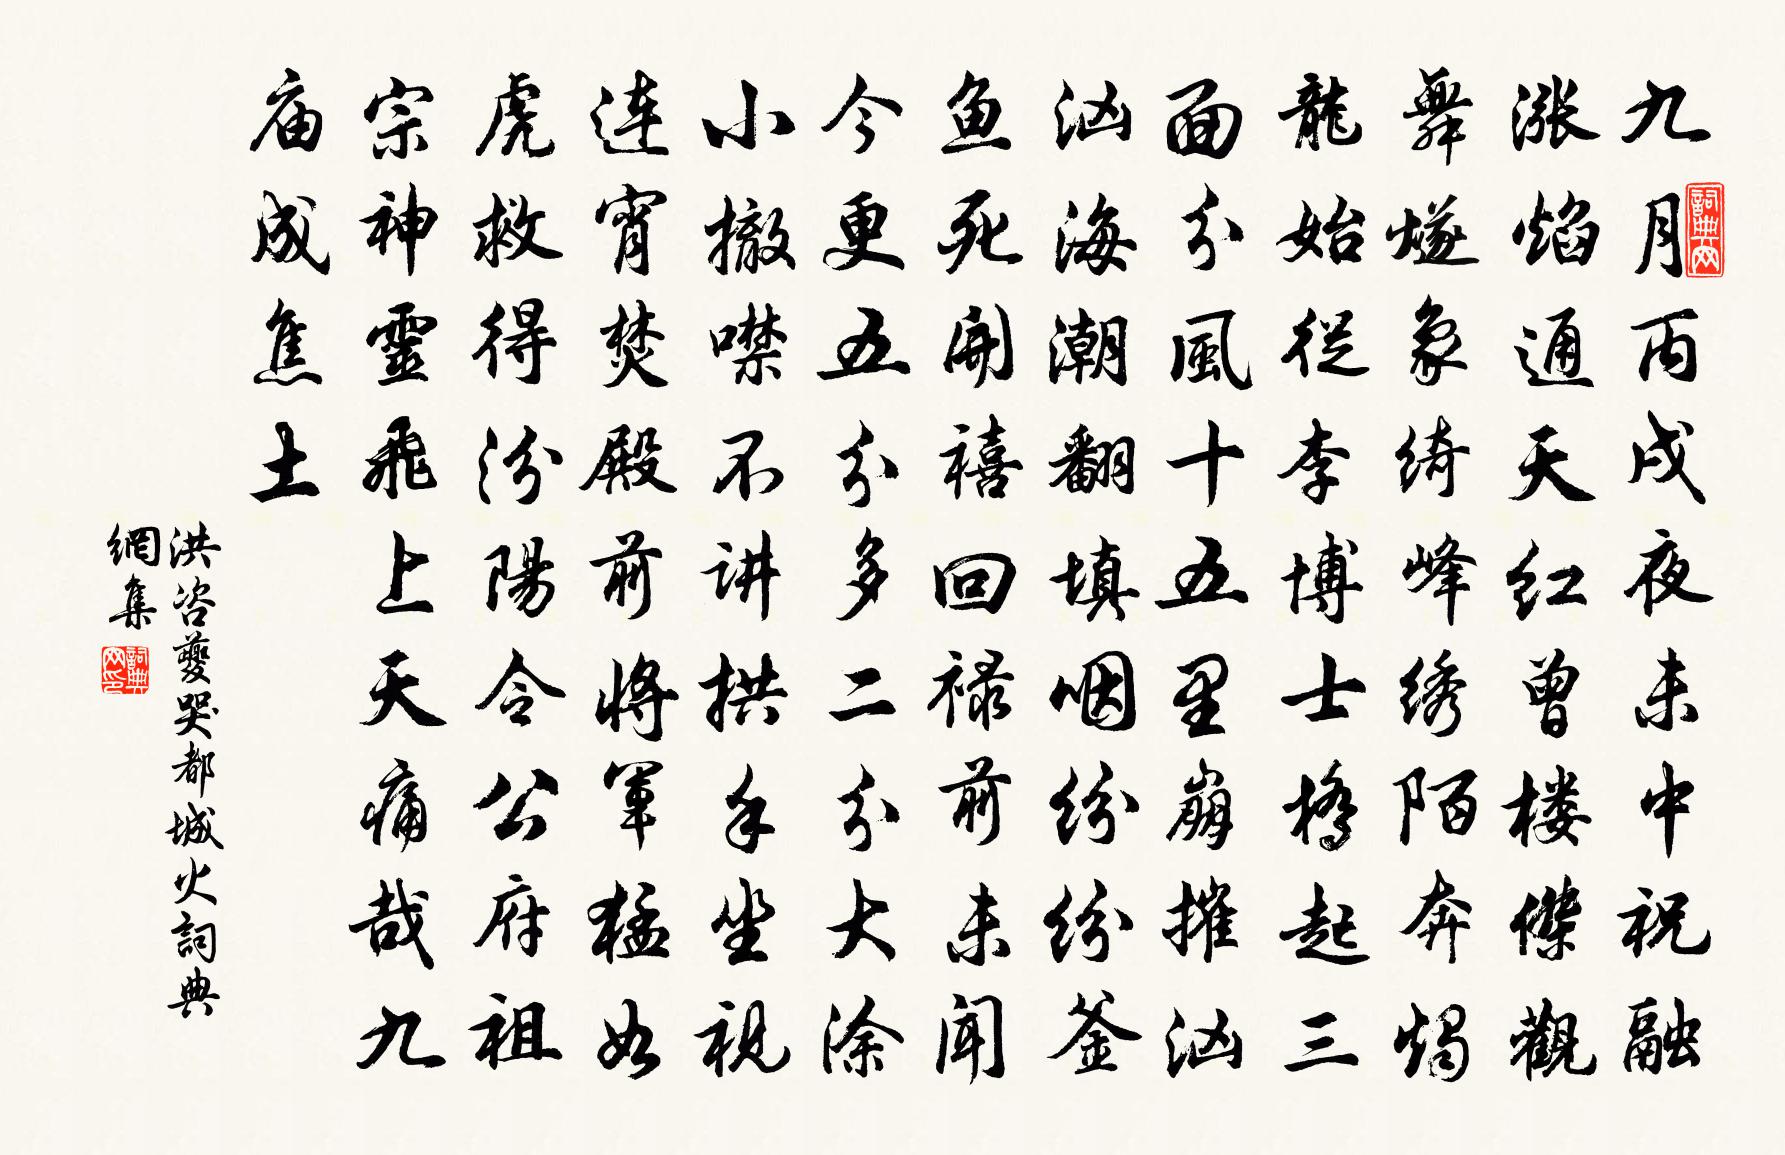 九月丙戌夜未中祝融
漲焰通天紅曾楼傑觀
舞燧象綺峰绣陌奔燭
龍始從李博士橋起三
面分風十五里崩摧汹
汹海潮翻填咽紛紛釜
鱼死開禧回禄前未聞
今更五分多二分大涂
小撤噤不讲拱手坐視
连宵焚殿前將軍猛如
虎救得汾陽令公府祖
宗神靈飛上天痛哉九
庙成焦土
洪咨夔哭都城火詞典
網集
詞典网
詞典网印